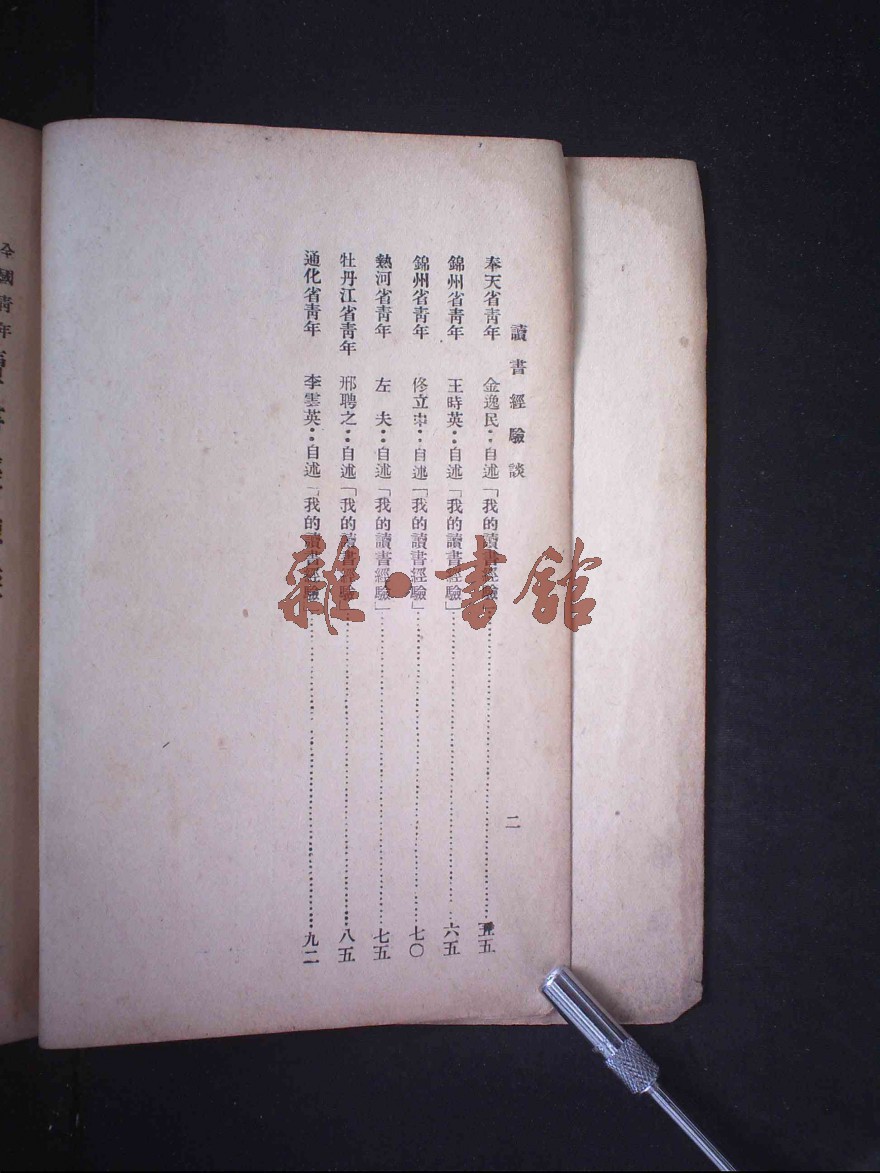 讀書經驗談
二
奉天省靑年 金逸民‥自述「我的讀書經驗」……五五
錦州省靑年 王時英‥自述「我的讀書經驗」……六五
錦州省靑年 佟立中‥自述「我的讀書經驗」……七〇
熱河省靑年 左 夫‥自述「我的讀書經驗」……七五
牡丹江省靑年 邢聘之‥自述「我的讀書經驗」……八五
通化省靑年 李雲英‥自述「我的讀書經驗」……九二
雜·書館
國靑年